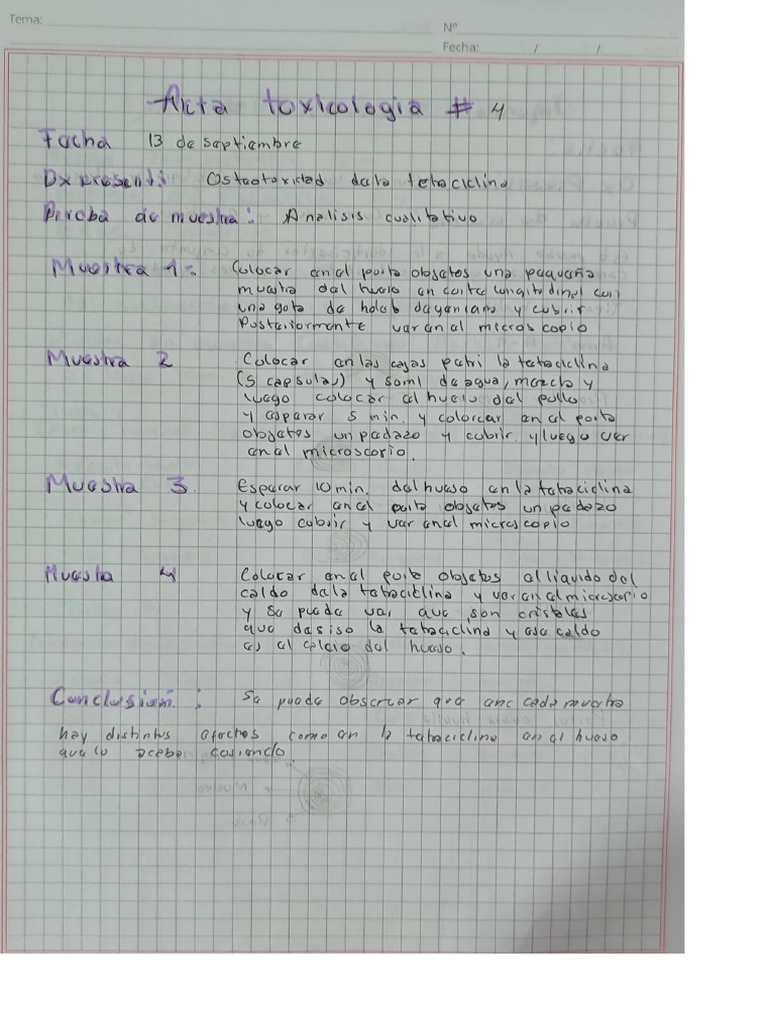 Tema:
N°
Fecha: / /
Acta toxicologia # 4
Facha 13 de saptiembre
Dx presenti: Ostaotoxidad dala tetraciclina
Prueba de muestra: Analisis cualitativo
Muestra 1: Colocar an al porta objatos una paquaña
muastra dal huaso an corta longitudinal con
una gota da holab dayaniano y cubrir
Postariormente var an al micros copio
Muastra 2 Colocar an las cajas patri la tatraciclina
(5 capsulas) y 50ml da agua, mazcla y
luago colocar al huaso dal pollo
y asparar 5 min. y colorcar an al porta
objatos un padazo y cubrir. y luego var
an al microscorio.
Muastra 3. Esparar 10 min. dal huaso an la tatraciclina
y colocar an al porta objatos un padazo
luago cubrir y var an al microscopio
Muasta 4 Colocar an al porta objatos al liquido dal
caldo da la tatraciclina y var an al microscopio
y sa puada var qua son cristalas
qua das iso la tatraciclina y asa caldo
as al calcio dal huaso.
Conclusion: Sa puada obsarvar qua anc cada muastra
hay distintos afactos como an la tatraciclina an al huaso
qua lo acaba